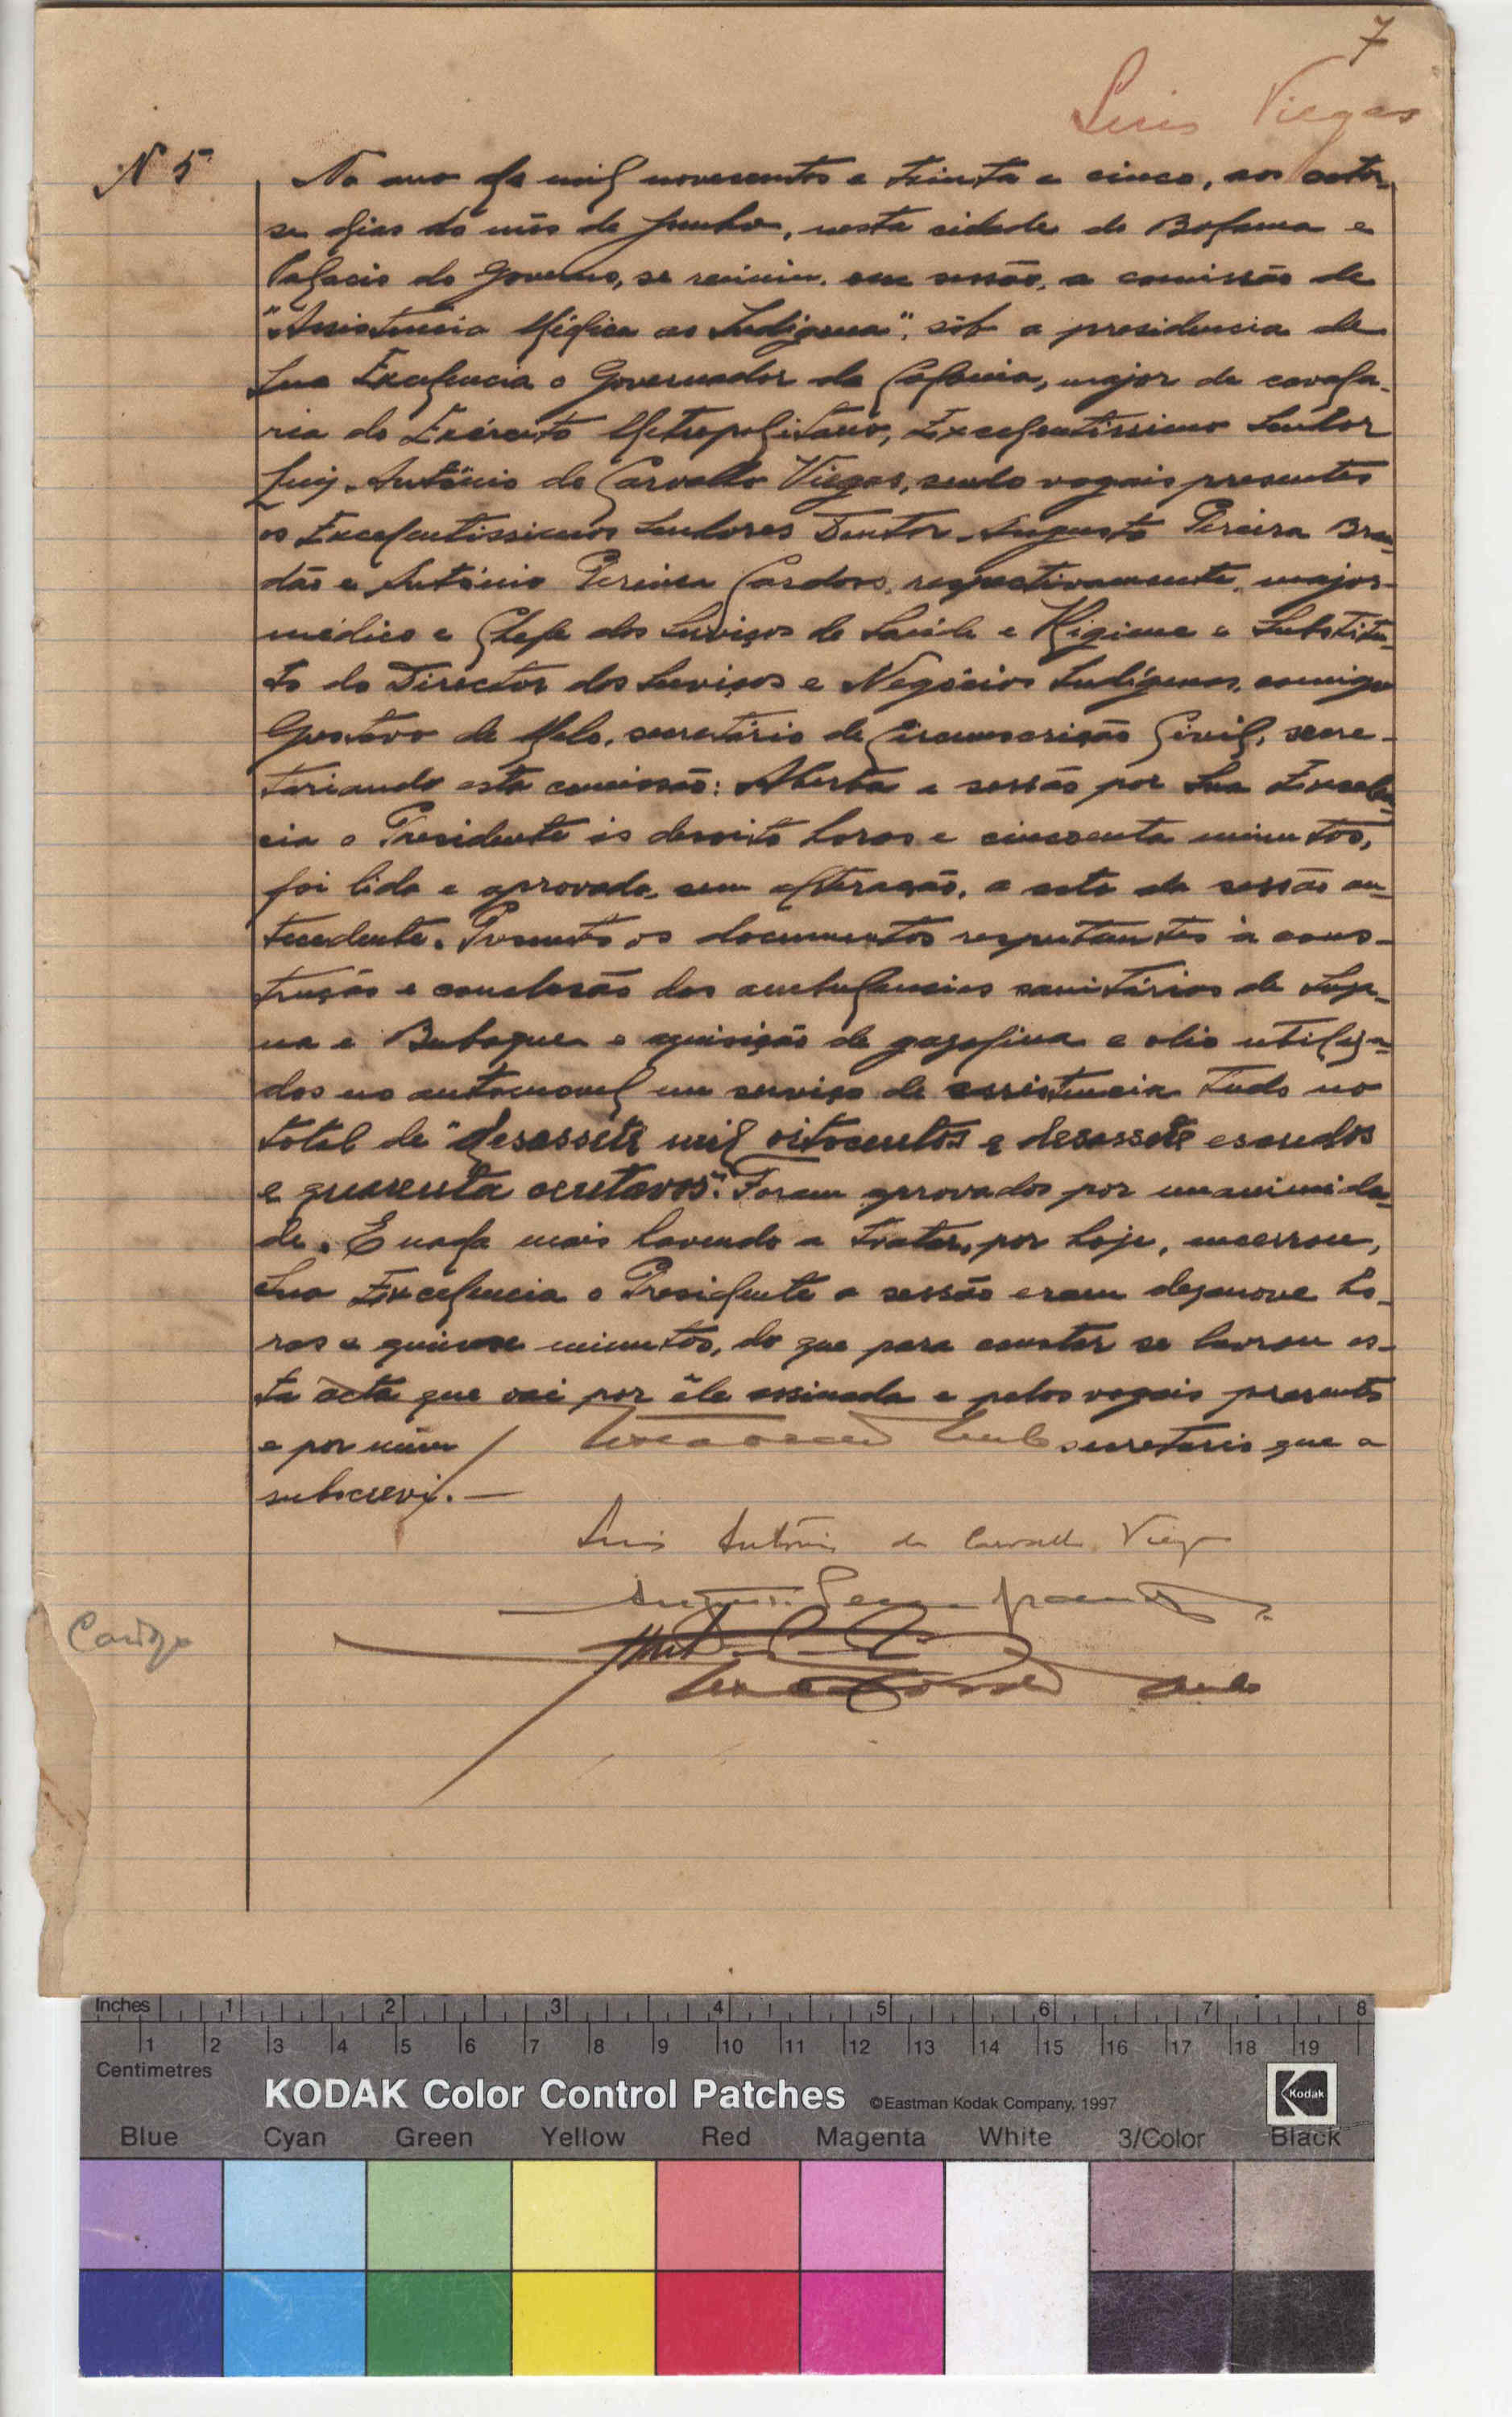 7
Luis Viegas
Nº 5
No ano de mil novecentos e trinta e cinco, aos cator-
se dias do mês de Junho, nesta cidade de Bolama e
Palacio do Governo, se reuniu, em sessão, a comissão de
"Assistencia Médica ao Indigena", sôb a presidencia de
Sua Excelencia o Governador da Colonia, major de cavala-
ria do Exército Metropolitano, Excelentissimo Senhor
Luiz António de Carvalho Viegas, sendo vogais presentes
os Excelentissimos Senhores Doutor Augusto Pereira Bran-
dão e António Pereira Cardoso, respectivamente, major-
médico e Chefe dos Serviços de Saúde e Higiene e Substitu-
to do Director dos Serviços e Negócios Indígenas, comigo
Gustavo de Melo, secretário de Circunscrição Civil, secre-
tariando esta comissão: Aberta a sessão por Sua Excelen-
cia o Presidente ás desoito horas e cincoenta minutos,
foi lida e aprovada, sem alteração, a acta da sessão an-
tecedente. Presentes os documentos respeitantes à cons-
trução e conclusão das ambulancias sanitárias de
na e Bubaque e aquisição de gazolina e olio utiliza-
dos no automovel em serviço de assistencia tudo no
total de "desassete mil oitocentos e desassete escudos
e quarenta centavos". Foram aprovados por unanimida-
de. E nada mais havendo a tratar, por hoje, encerrou,
Sua Excelencia o Presidente a sessão eram dezanove ho-
ras e quinse minutos, do que para constar se lavrou es-
ta acta que vai por êle assinada e pelos vogais presents
e por mim / secretario que a
subscrevi. —
Luis António de Carvalho Viegas
Cardoso
Inches 1 2 3 4 5 6 7 8
1 2 3 4 5 6 7 8 9 10 11 12 13 14 15 16 17 18 19
Centimetres
KODAK Color Control Patches ©Eastman Kodak Company, 1997 Kodak
Blue Cyan Green Yellow Red Magenta White 3/Color Black